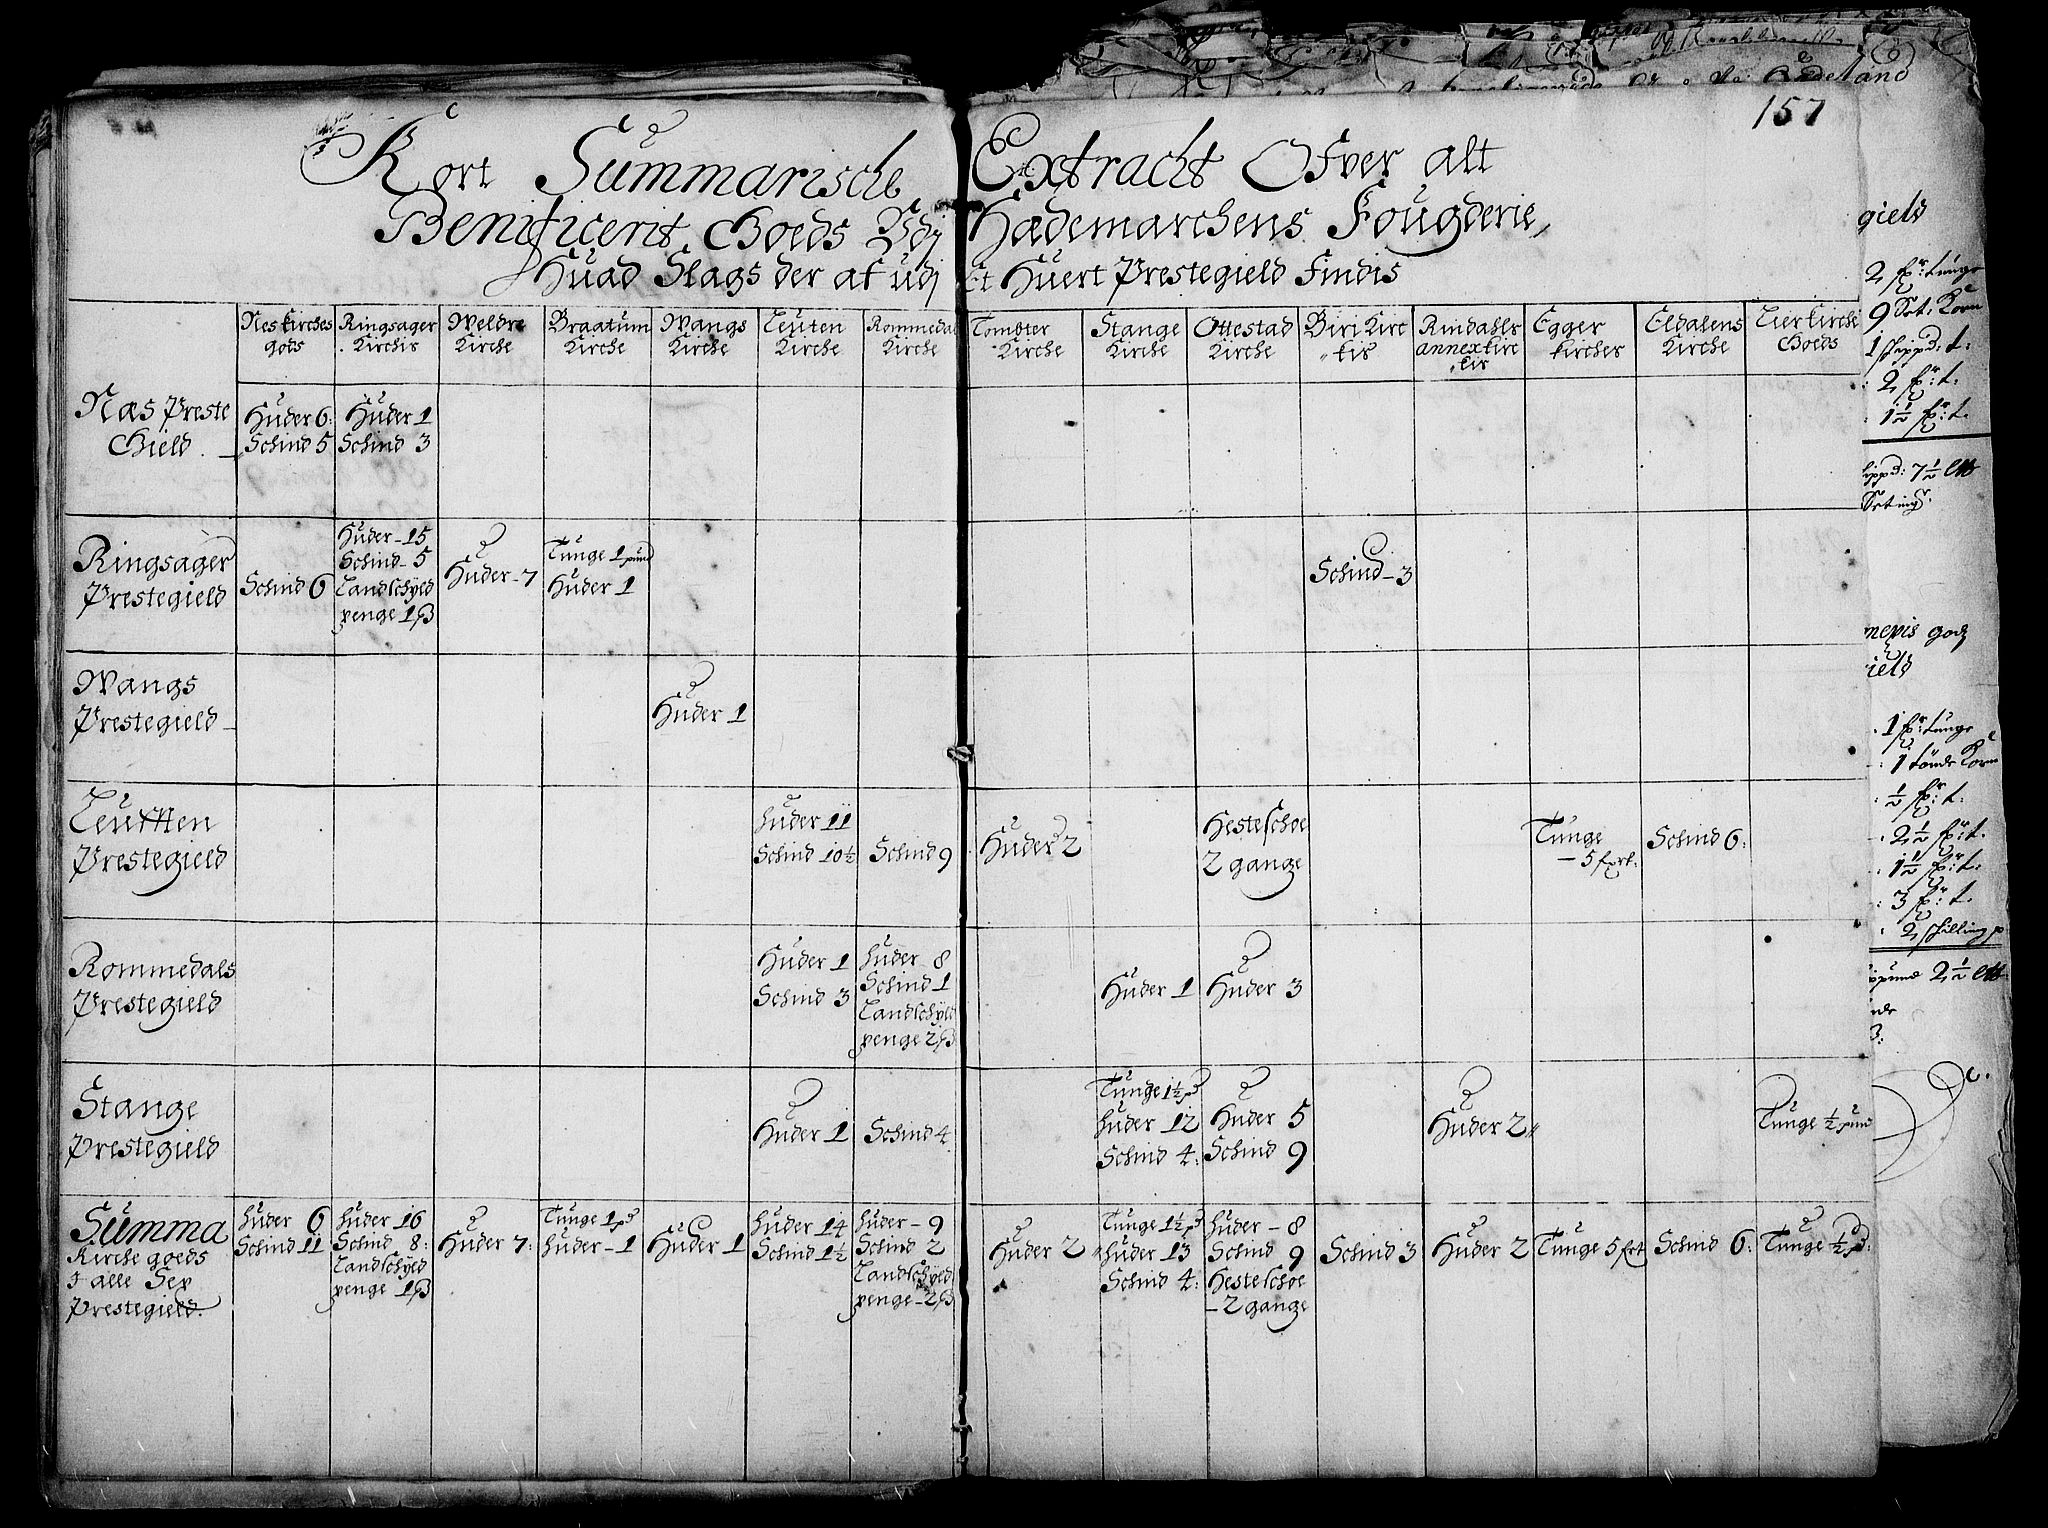 157
Kort Summarische Extracht Ofver alt
Benificerit Goeds Udj Hædemarchens Fougderie,
Huad Slags der af udj Et Huert Prestegield Findis
Nes Kirches gods | Ringsager Kirchis | Weldre Kirche | Braatum Kirche | Wangs Kirche | Leuten Kirche | Rommedal Kirche | Tombter Kirche | Stange Kirche | Ottestad Kirche | Biri Kirc kis | Rindalls annexkirc kis | Egger kirches | Eldalens Kirche | Lier kirche Goeds
Næs Preste Gield. | Huder 6: Schind 5 | Huder 1 Schind 3
Ringsager Prestegield | Schind 6 | Huder - 15 Schind - 5 Landschyld penge 1 ß | Huder - 7 | Tunge 1 pund Huder 1 | Schind - 3
Wangs Prestegield | Huder 1
Leutten Prestegield | Huder 11 Schind 10½ | Schind 9 | Huder 2 | Hesteschoe 2 gange | Tunge - 5 fxrt: | Schind 6:
Rommedals Prestegield | Huder 1 Schind 3 | Huder 8 Schind 1 Landschyld penge 2 ß | Huder 1 | Huder 3
Stange Prestegield | Huder 1 | Schind 4 | Tunge 1½ pd Huder 12 Schind 4: | Huder 5 Schind 9 | Huder 2 | Tunge ½ pund
Summa Kirche goeds I alle Sex Prestegield. | Huder 6 Schind 11 | Huder 16 Schind 8: Landschyld penge 1 ß | Huder 7: | Tunge 1 pd Huder - 1 | Huder 1 | Huder 14 Schind 1½ | Huder - 9 Schind 2 Landschyld penge - 2 ß | Huder 2 | Tunge 1½ pd Huder 13 Schind 4: | Huder - 8 Schind 9 Hesteschoe - 2 gange | Schind 3 | Huder 2 | Tunge 5 fxrt | Schind 6: | Tunge ½ pd:
gield
2 fxr: tunge
9 Set: Korn
1 skippd: t:
2 fxr: t.
1½ fxr: t.
7½ Ltt
Setinger
gods
1 fxr: tunge
1 tønde Korn
½ fxr: t.
2½ fxr: t.
1½ fxr: t.
3 fxr: t.
2 skilling
2½ Ltt